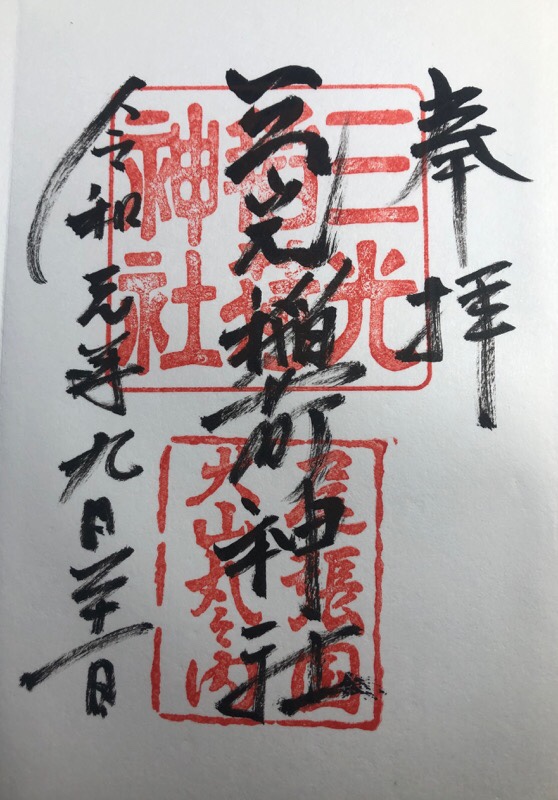 奉拝
三光稲荷神社
令和元年九月廿一日
三光
稲荷
神社
尾張国
犬山丸之内